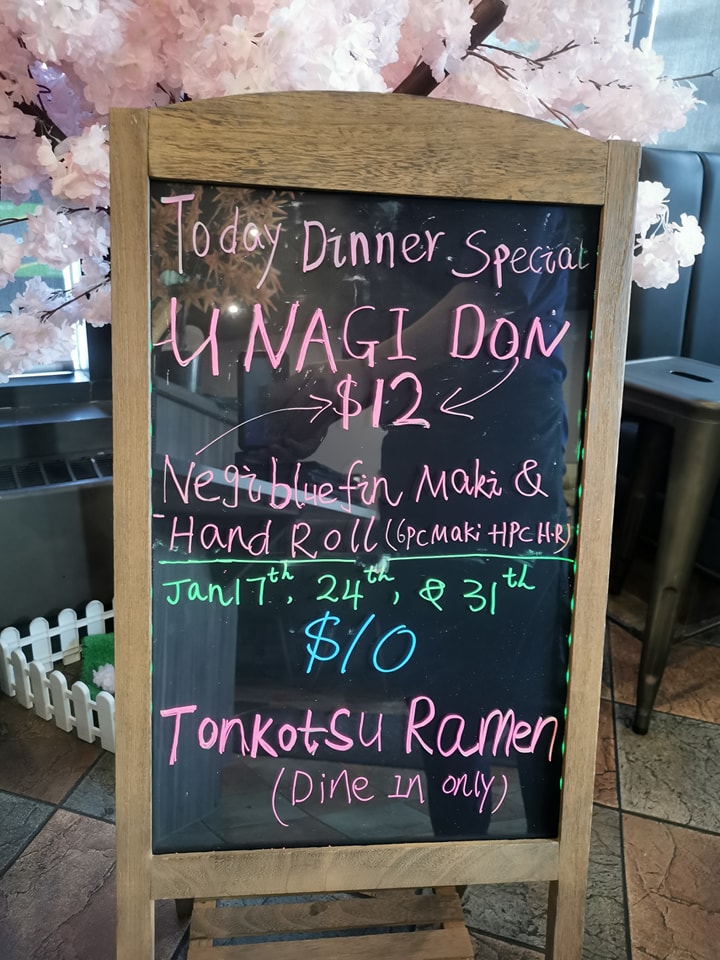 Today Dinner Special
UNAGI DON
$12
Negi bluefin Maki &
Hand Roll (6PC Maki + 1PC H.R)
Jan 17th, 24th, & 31th
$10
Tonkotsu Ramen
(Dine In only)